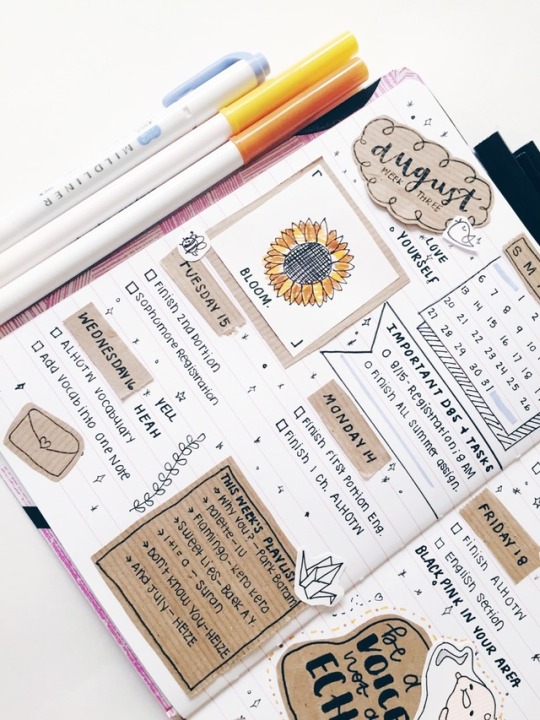 MILDLINER
august
WEEK THREE
LOVE
YOURSELF
BLOOM.
TUESDAY 15
Finish 2nd portion
Sophomore Registration
WEDNESDAY 16
ALHOTW Vocabulary
Add Vocab into One Note
YELL
HEAH
IMPORTANT D8S & TASKS
8/15: Registration; 8 AM
Finish ALL summer assign.
S M
1
6 7 8
13 14 15
20 21 22 23 24 25 26
27 28 29 30 31
MONDAY 14
Finish First Portion Eng.
Finish 1 Ch. ALHOTW
THIS WEEK'S PLAYLIST
Why You? - Park Boram
Palette - IU
Flamingo - Kero Kero
Sweet Lies - Baek A.Y.
1+1=a - Suran
Don't Know You - HEIZE
And July - HEIZE
FRIDAY 18
Finish ALHOTW
English Section
BLACK PINK IN YOUR AREA
be a
VOICE
not a
ECH